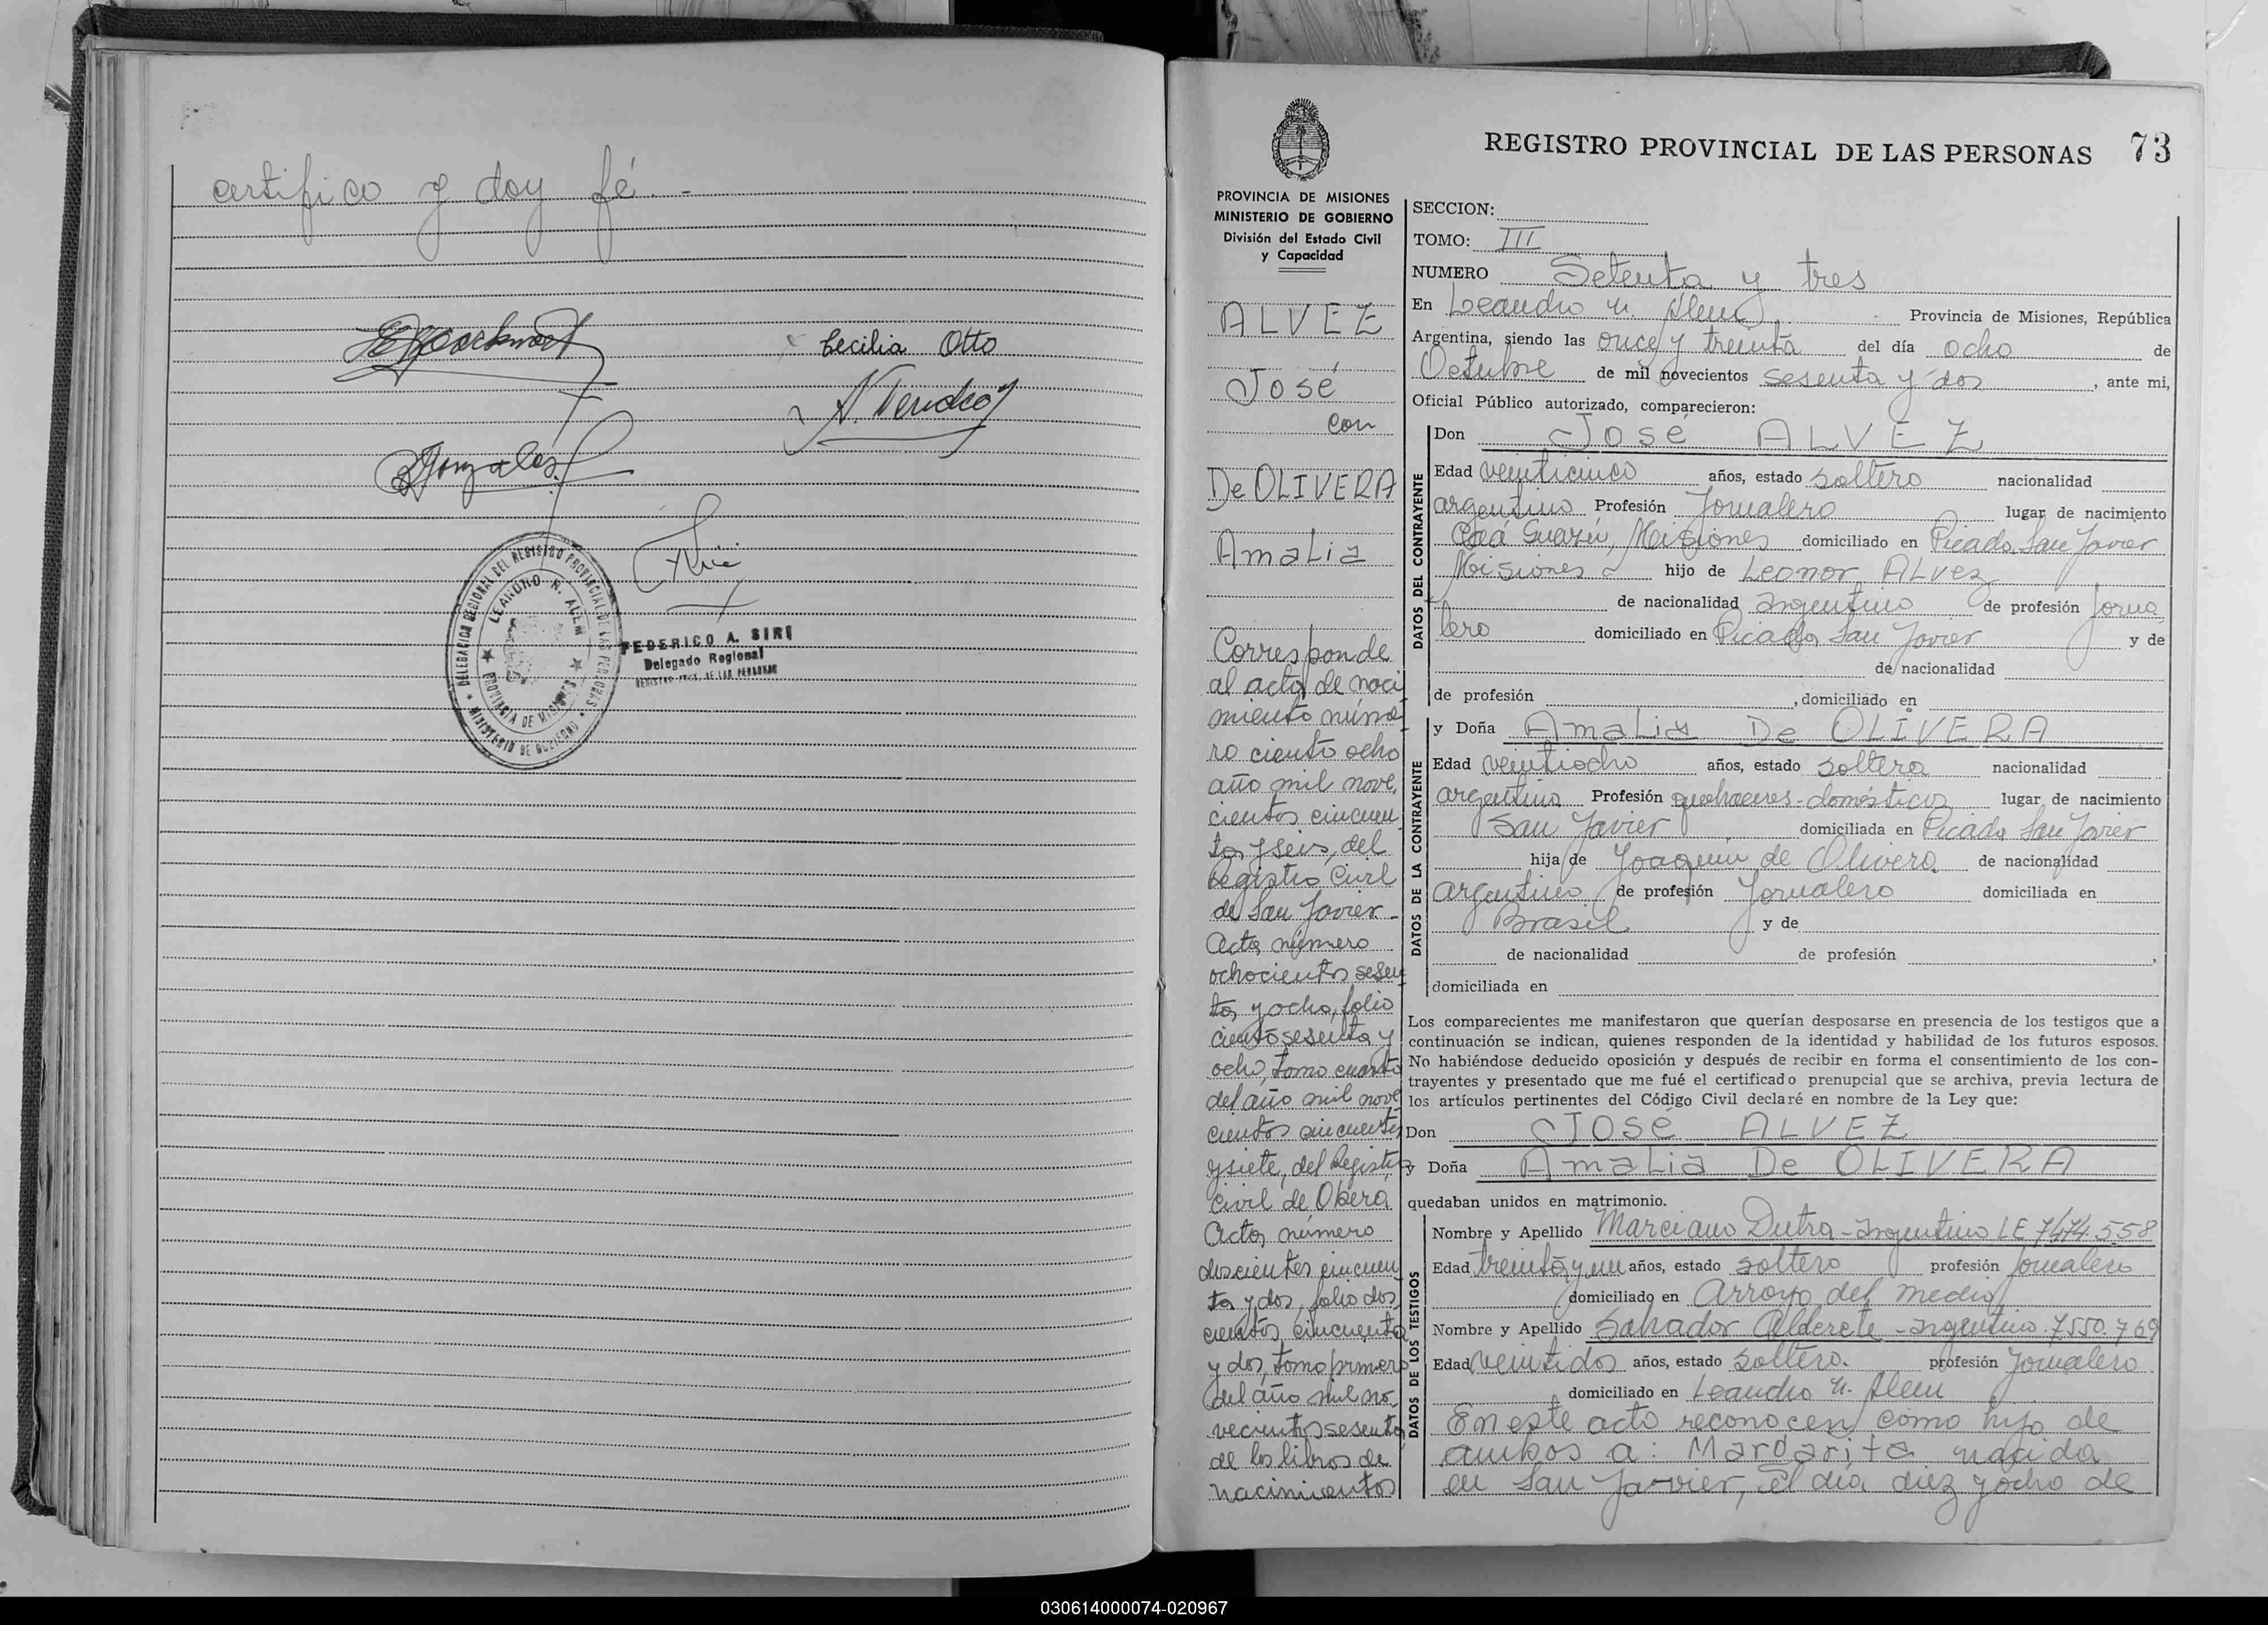 certifico y doy fé.-
Cecilia Otto
DELEGACION REGIONAL DEL REGISTRO PROVINCIAL DE LAS PERSONAS
LEANDRO N. ALEM
PROVINCIA DE MISIONES
MINISTERIO DE GOBIERNO
FEDERICO A. SIRI
Delegado Regional
REGISTRO PROV. DE LAS PERSONAS
PROVINCIA DE MISIONES
MINISTERIO DE GOBIERNO
División del Estado Civil
y Capacidad
ALVEZ
José
con
De OLIVERA
Amalia
Corresponde
al acta de naci
miento núme
ro ciento ocho
año mil nove,
cientos cincuen
ta y seis, del
Registro Civil
de San Javier-
Acta número
ochocientos sesen
ta y ocho, folio
ciento sesenta y
ocho, tomo cuarto
del año mil nove
cientos cincuenta
y siete, del Registro
Civil de Oberá
Acta número
doscientos cincuen
ta y dos, folio dos
cientos cincuenta
y dos, tomo primero
del año mil no,
vecientos sesenta
de los libros de
nacimientos
REGISTRO PROVINCIAL DE LAS PERSONAS 73
SECCION:
TOMO: III
NUMERO Setenta y tres
En Leandro N. Alem Provincia de Misiones, República
Argentina, siendo las once y treinta del día ocho de
Octubre de mil novecientos sesenta y dos , ante mi,
Oficial Público autorizado, comparecieron:
DATOS DEL CONTRAYENTE
Don José ALVEZ
Edad veinticinco años, estado soltero nacionalidad
argentino Profesión Jornalero lugar de nacimiento
Guazú, Misiones domiciliado en Picada San Javier
Misiones hijo de Leonor ALvez
de nacionalidad argentino de profesión Jorna
lero domiciliado en Picada San Javier y de
de nacionalidad
de profesión , domiciliado en
DATOS DE LA CONTRAYENTE
y Doña Amalia De OLIVERA
Edad veintiocho años, estado soltera nacionalidad
argentina Profesión quehaceres-domésticos lugar de nacimiento
San Javier domiciliada en Picada San Javier
hija de Joaquin de Olivera de nacionalidad
argentino de profesión Jornalero domiciliada en
Brasil y de
de nacionalidad de profesión ,
domiciliada en
Los comparecientes me manifestaron que querían desposarse en presencia de los testigos que a
continuación se indican, quienes responden de la identidad y habilidad de los futuros esposos.
No habiéndose deducido oposición y después de recibir en forma el consentimiento de los con-
trayentes y presentado que me fué el certificado prenupcial que se archiva, previa lectura de
los artículos pertinentes del Código Civil declaré en nombre de la Ley que:
Don José ALVEZ
y Doña Amalia De OLIVERA
quedaban unidos en matrimonio.
DATOS DE LOS TESTIGOS
Nombre y Apellido Marciano Dutra - argentino LE 7.474.558
Edad treinta y un años, estado soltero profesión jornalero
domiciliado en Arroyo del medio
Nombre y Apellido Salvador Alderete - argentino. 7.550.769
Edad veintidos años, estado soltero. profesión Jornalero
domiciliado en Leandro N. Alem
En este acto reconocen como hijo de
ambos a: Margarita nacida
en San Javier, el día diez y ocho de
030614000074-020967